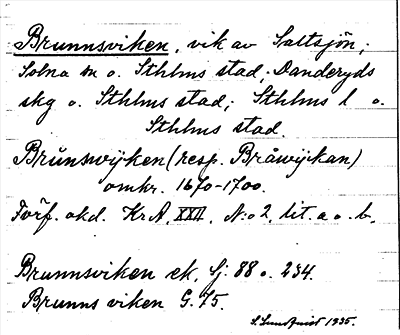 Brunnsviken, vik av Saltsjön;
Solna sn o. Sthlms stad; Danderyds
skg o. Sthlms stad; Sthlms l o.
Sthlms stad.
Brůnswÿken (resp. Bråwÿkan)
omkr. 1670-1700.
Förf. okd. KrA, XXII, N:o 2, lit. a o. b.
Brunnsviken ek, Sj: 88 o. 234.
Brunns viken G. 75.
S. Lundquist 1935.